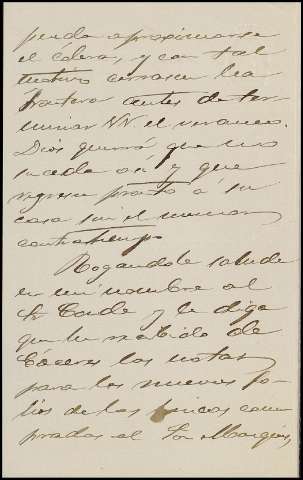 pueda aproximarse
el cólera, y con tal
motivo cerrasen la
frontera antes de ter-
minar VV. el veraneo.
Dios querrá que no
suceda así y que
regresen pronto á su
casa sin el menor
contratiempo.
Rogandole salude
en mi nombre al
Sr Conde y le diga
que he recibido de
Cáceres las notas
para los nuevos fo-
lios de las fincas com-
pradas al Sor Marqués,